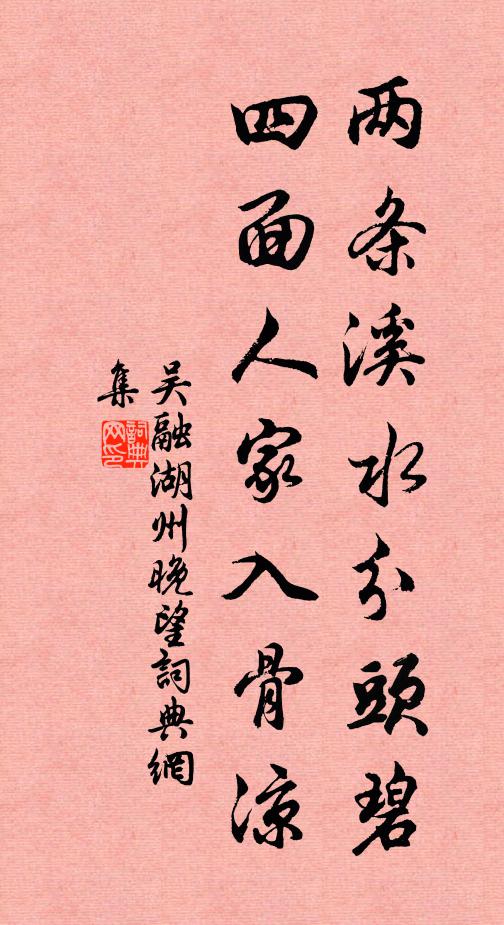 两条溪水分头碧
四面人家入骨凉
吴融湖州晚望詞典網
集
詞典
网印